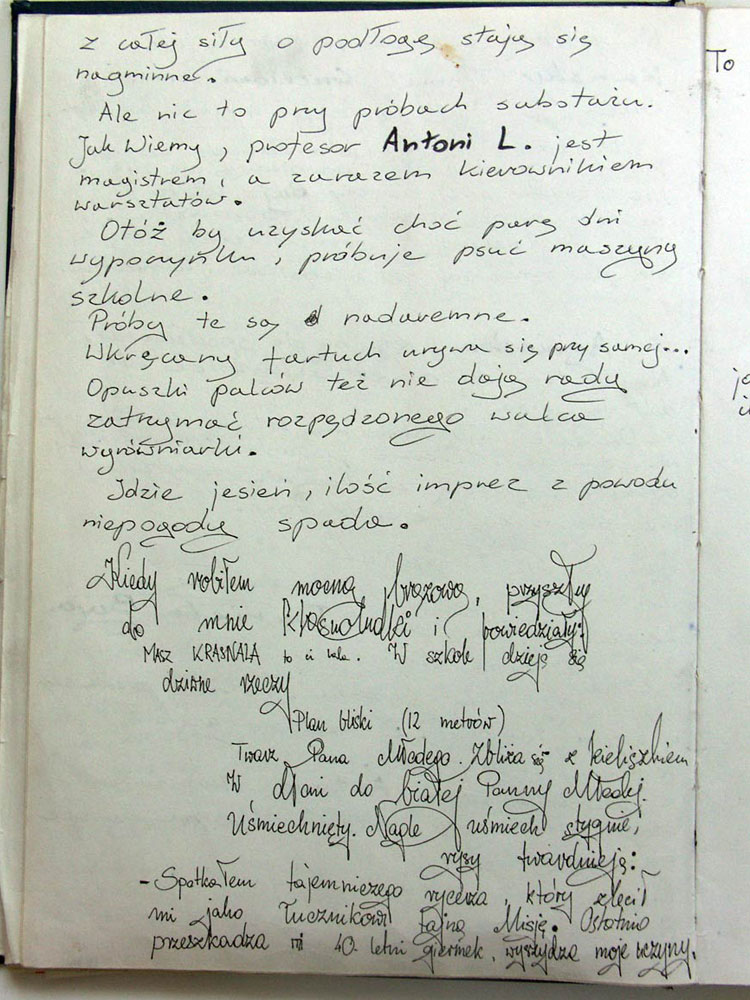 z całej siły o podłogę stają się
nagminne.
Ale nic to przy próbach sabotażu.
Jak Wiemy, profesor Antoni L. jest
magistrem, a zarazem kierownikiem
warsztatów.
Otóż by uzyskać choć parę dni
wypoczynku, próbuje psuć maszyny
szkolne.
Próby te są nadaremne.
Wkręcany fartuch urywa się przy samej...
Opuszki palców też nie dają rady
zatrzymać rozpędzonego walca
wyrówniarki.
Idzie jesień, ilość imprez z powodu
niepogody spada.
Kiedy robiłem mocną brązową, przyszły
do mnie Krasnoludki i powiedziały:
MASZ KRASNALA to ci wala. W szkole dzieją się
dziwne rzeczy
Plan bliski (12 metrów)
Twarz Pana Młodego. Zbliża się z kieliszkiem
W dłoni do białej Panny Młodej.
Uśmiechnięty. Nagle uśmiech stygnie,
rysy twardnieją:
- Spotkałem tajemniczego rycerza, który zlecił
mi jako Łucznikowi tajną Misję. Ostatnio
przeszkadza mi 40. letni giermek, wyszydza moje uczyny.
To